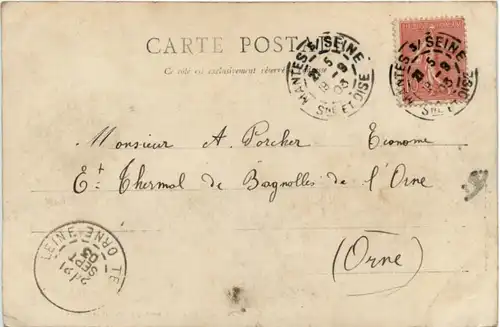 CARTE POSTALE
Ce côté est exclusivement réservé
MANTES S/ SEINE
SNE ET OISE
MANTES S/ SEINE
SNE ET OISE
Monsieur A. Porcher Econome
Et Thermal de Bagnolles de l'Orne
(Orne)
ORNE
SEPT
03